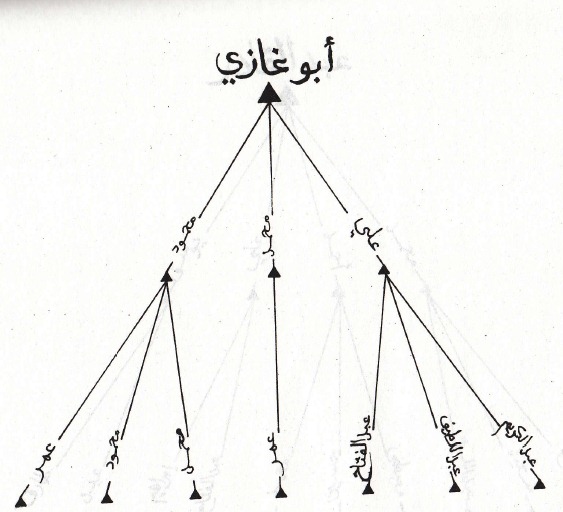 أبو غازي
علي
محمد
محمود
عبد الكريم
عبد اللطيف
عبد الفتاح
عمر
محمد
محمود
عمر